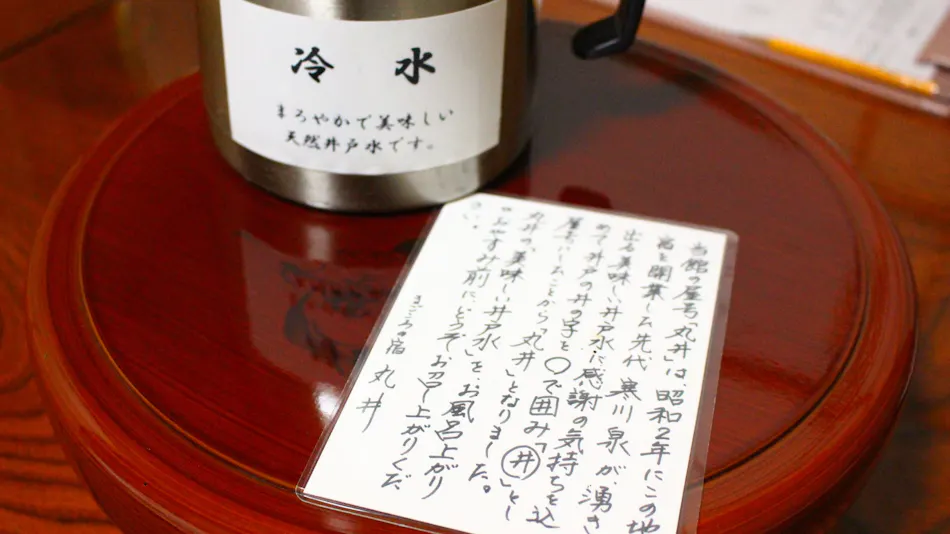 冷 水
まろやかで美味しい
天然井戸水です。
当館の屋号「丸井」は、昭和2年にこの地
宿を開業した先代 寒川 泉が湧き
出る美味しい井戸水に感謝の気持ちを込
めて井戸の井の字を〇で囲み「㊓」とし
屋号にしたことから「丸井」となりました。
丸井の、美味しい井戸水」を、お風呂上がり
おやすみ前に、どうぞお召し上がりくだ
さい。
まごころの宿 丸井